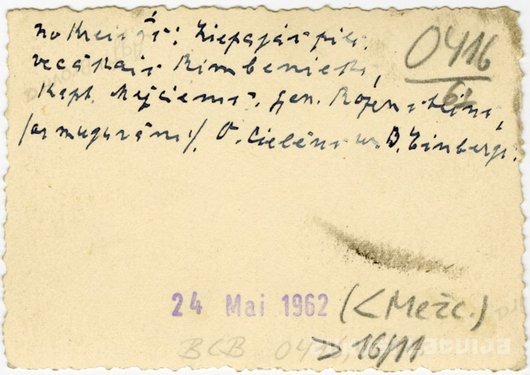 no kreisās: Liepājas pils.
vecākais Rimbenieks,
kapt. Mežciems, gen. Rozenšteins,
/ar mugurām/. O. Cielēns un B. Einbergs.
0416
62
24 Mai 1962
(< Mežc.)
> 16/11
BCB 0416